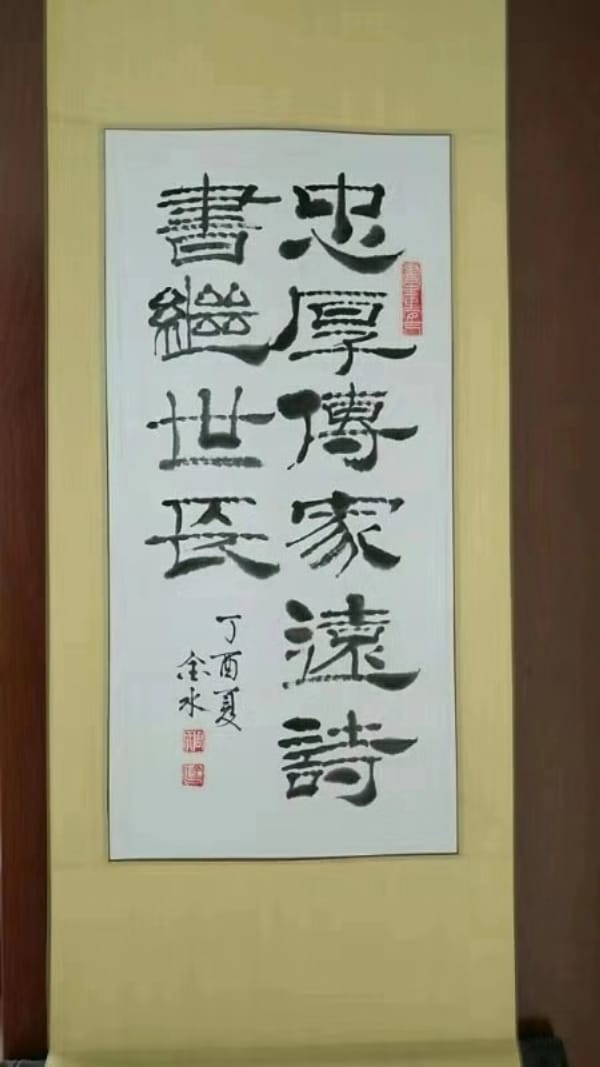 忠厚傳家遠詩
書繼世長
丁酉夏
金水